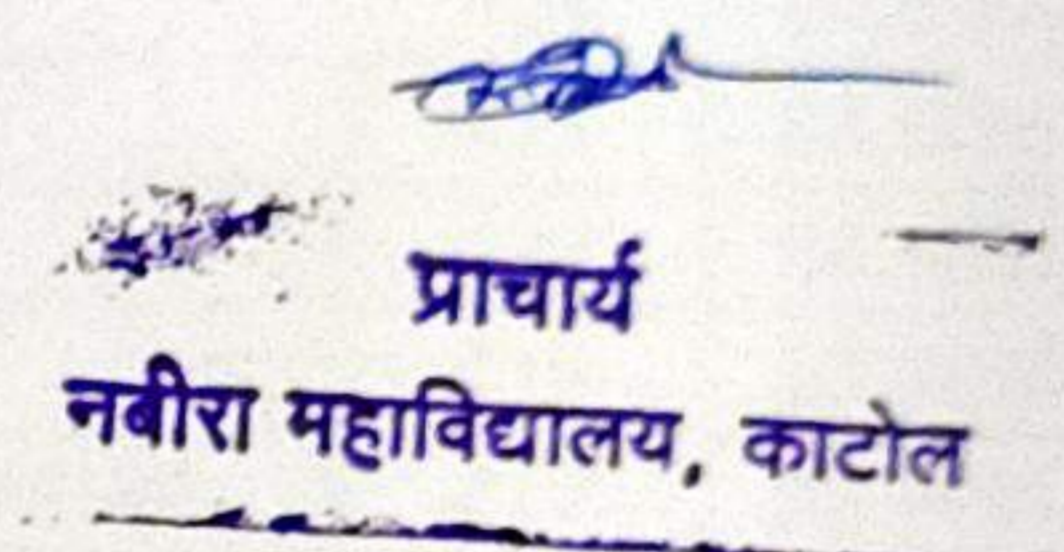 प्राचार्य
नबीरा महाविद्यालय, काटोल